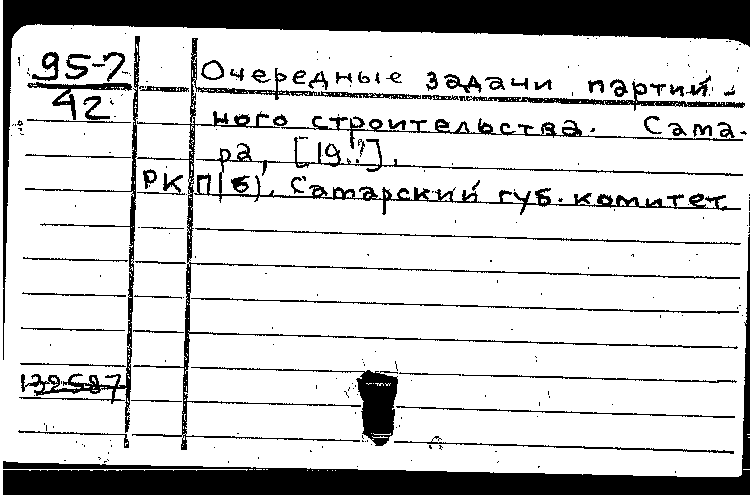 95-7
42
Очередные задачи партий-
ного строительства. Сама-
ра, [19..?].
РКП(б). Самарский губ. комитет.
132587